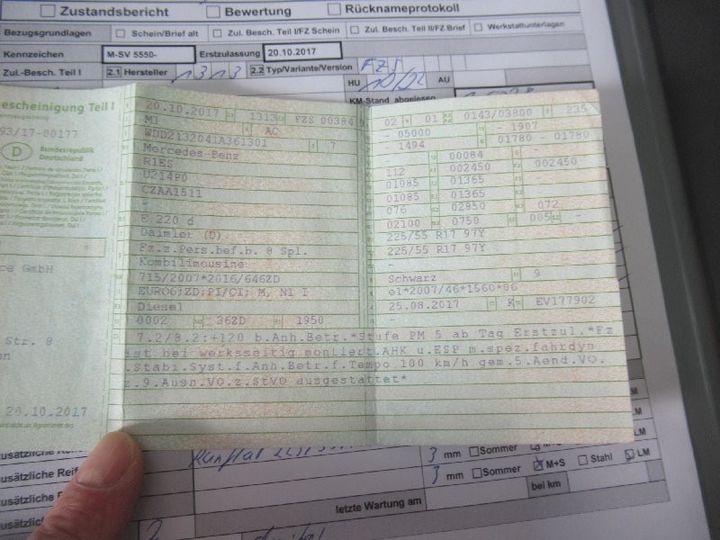 Zustandsbericht Bewertung Rücknameprotokoll
Bezugsgrundlagen Schein/Brief alt Zul. Besch. Teil I/FZ Schein Zul. Besch. Teil II/FZ Brief Werkstattunterlagen
Kennzeichen M-SV 5550- Erstzulassung 20.10.2017
Zul.-Besch. Teil I 2.1 Hersteller 1313 2.2 Typ/Variante/Version FZS
HU 10/22 AU
KM-Stand abgelesen
escheinigung Teil I
93/17-00177
D Bundesrepublik
Deutschland
ce GmbH
Str. 8
on
20.10.2017
20.10.2017 1313 FZS 00384
M1 AC
WDD2132041A361301 7
Mercedes-Benz
R1ES
U214P0
CZAA1511
-
E 220 d
Daimler (D)
Fz.z.Pers.bef.b. 8 Spl.
Kombilimousine
715/2007*2016/646ZD
EURO6;ZD;PI/CI; M, N1 I
Diesel
0002 36ZD 1950
02 01 0143/03800 235
05000 - 1907
1494 01780 - 01780
- 00084 -
112 002450 002450
01085 01365 -
01085 01365 -
076 02850 072
02100 0750 005 -
225/55 R17 97Y
225/55 R17 97Y
-
-
Schwarz 9
e1*2007/46*1560*06
25.08.2017 K EV177902
7.2/8.2:+120 b.Anh.Betr.*Stufe PM 5 ab Tag Erstzul.*Fz
ist bei werksseitig montiert.AHK u.ESP m.spez.fahrdyn
.Stabi.Syst.f.Anh.Betr.f.Tempo 100 km/h gem.5.Aend.VO.
z.9.Ausn.VO.z.StVO ausgestattet*
usätzliche Reif 3 mm Sommer M+S LM
usätzliche Reife 3 mm Sommer M+S Stahl LM
usätzliche
usätzliche letzte Wartung am bei km